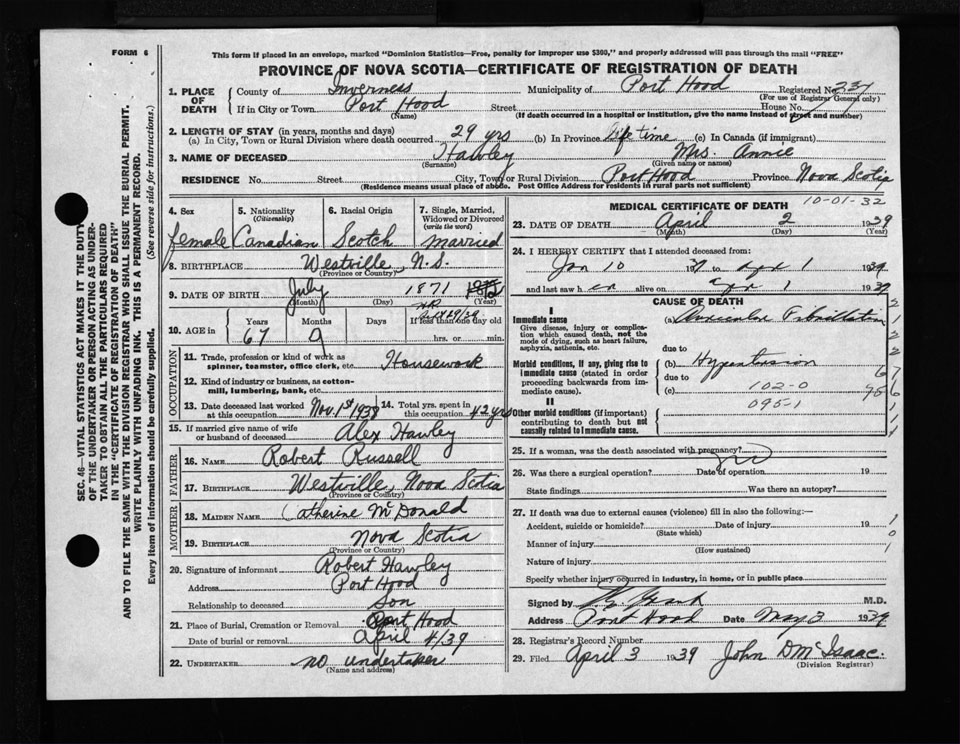 FORM 6
This form if placed in an envelope, marked "Dominion Statistics—Free, penalty for improper use $300," and properly addressed will pass through the mail "FREE"
PROVINCE OF NOVA SCOTIA—CERTIFICATE OF REGISTRATION OF DEATH
1. PLACE OF DEATH County of Inverness Municipality of Port Hood Registered No. 231
(For use of Registrar General only)
If in City or Town Port Hood Street House No.
(Name) (If death occurred in a hospital or institution, give the name instead of street and number)
2. LENGTH OF STAY (in years, months and days)
(a) In City, Town or Rural Division where death occurred 29 yrs (b) In Province Life time (c) In Canada (if immigrant)
3. NAME OF DECEASED Hawley Mrs. Annie
(Surname) (Given name or names)
RESIDENCE No. Street City, Town or Rural Division Port Hood Province Nova Scotia
(Residence means usual place of abode. Post Office Address for residents in rural parts not sufficient)
4. Sex 5. Nationality (Citizenship) 6. Racial Origin 7. Single, Married, Widowed or Divorced (write the word)
female Canadian Scotch married
8. BIRTHPLACE Westville, N.S.
(Province or Country)
9. DATE OF BIRTH July 1871 1872
(Month) (Day) (Year)
10. AGE in Years Months Days If less than one day old
67 9 hrs. or min.
OCCUPATION
11. Trade, profession or kind of work as spinner, teamster, office clerk, etc. Housework
12. Kind of industry or business, as cotton-mill, lumbering, bank, etc.
13. Date deceased last worked at this occupation Nov. 1st 1938 14. Total yrs. spent in this occupation 42 yrs
15. If married give name of wife or husband of deceased Alex Hawley
FATHER
16. NAME Robert Russell
17. BIRTHPLACE Westville, Nova Scotia
(Province or Country)
MOTHER
18. MAIDEN NAME Catherine McDonald
19. BIRTHPLACE Nova Scotia
(Province or Country)
20. Signature of informant Robert Hawley
Address Port Hood
Relationship to deceased Son
21. Place of Burial, Cremation or Removal Port Hood
Date of burial or removal April 4/39
22. UNDERTAKER no undertaker
(Name and address)
MEDICAL CERTIFICATE OF DEATH
10-01-32
23. DATE OF DEATH April 2 1939
(Month) (Day) (Year)
24. I HEREBY CERTIFY that I attended deceased from:
Jan 10 to Apr 1 1939
and last saw her alive on Apr 1 1939
CAUSE OF DEATH
I
Immediate cause (a) Auricular Fibrillation
Give disease, injury or complication which caused death, not the mode of dying, such as heart failure, asphyxia, asthenia, etc.
due to
Morbid conditions, if any, giving rise to immediate cause (stated in order proceeding backwards from immediate cause).
(b) Hypertension
due to
(c) 102-0
II 095-1
Other morbid conditions (if important) contributing to death but not causally related to immediate cause.
25. If a woman, was the death associated with pregnancy? No
26. Was there a surgical operation? Date of operation 19
State findings Was there an autopsy?
27. If death was due to external causes (violence) fill in also the following:—
Accident, suicide or homicide? Date of injury 19
(State which)
Manner of injury
(How sustained)
Nature of injury
Specify whether injury occurred in industry, in home, or in public place
Signed by M.D.
Address Port Hood Date May 3 1939
28. Registrar's Record Number
29. Filed April 3 1939 John D McIsaac.
(Division Registrar)
SEC. 46—VITAL STATISTICS ACT MAKES IT THE DUTY
OF THE UNDERTAKER OR PERSON ACTING AS UNDER-
TAKER TO OBTAIN ALL THE PARTICULARS REQUIRED
IN THE "CERTIFICATE OF REGISTRATION OF DEATH"
AND TO FILE THE SAME WITH THE DIVISION REGISTRAR WHO SHALL ISSUE THE BURIAL PERMIT.
WRITE PLAINLY WITH UNFADING INK. THIS IS A PERMANENT RECORD.
Every item of information should be carefully supplied. (See reverse side for instructions.)